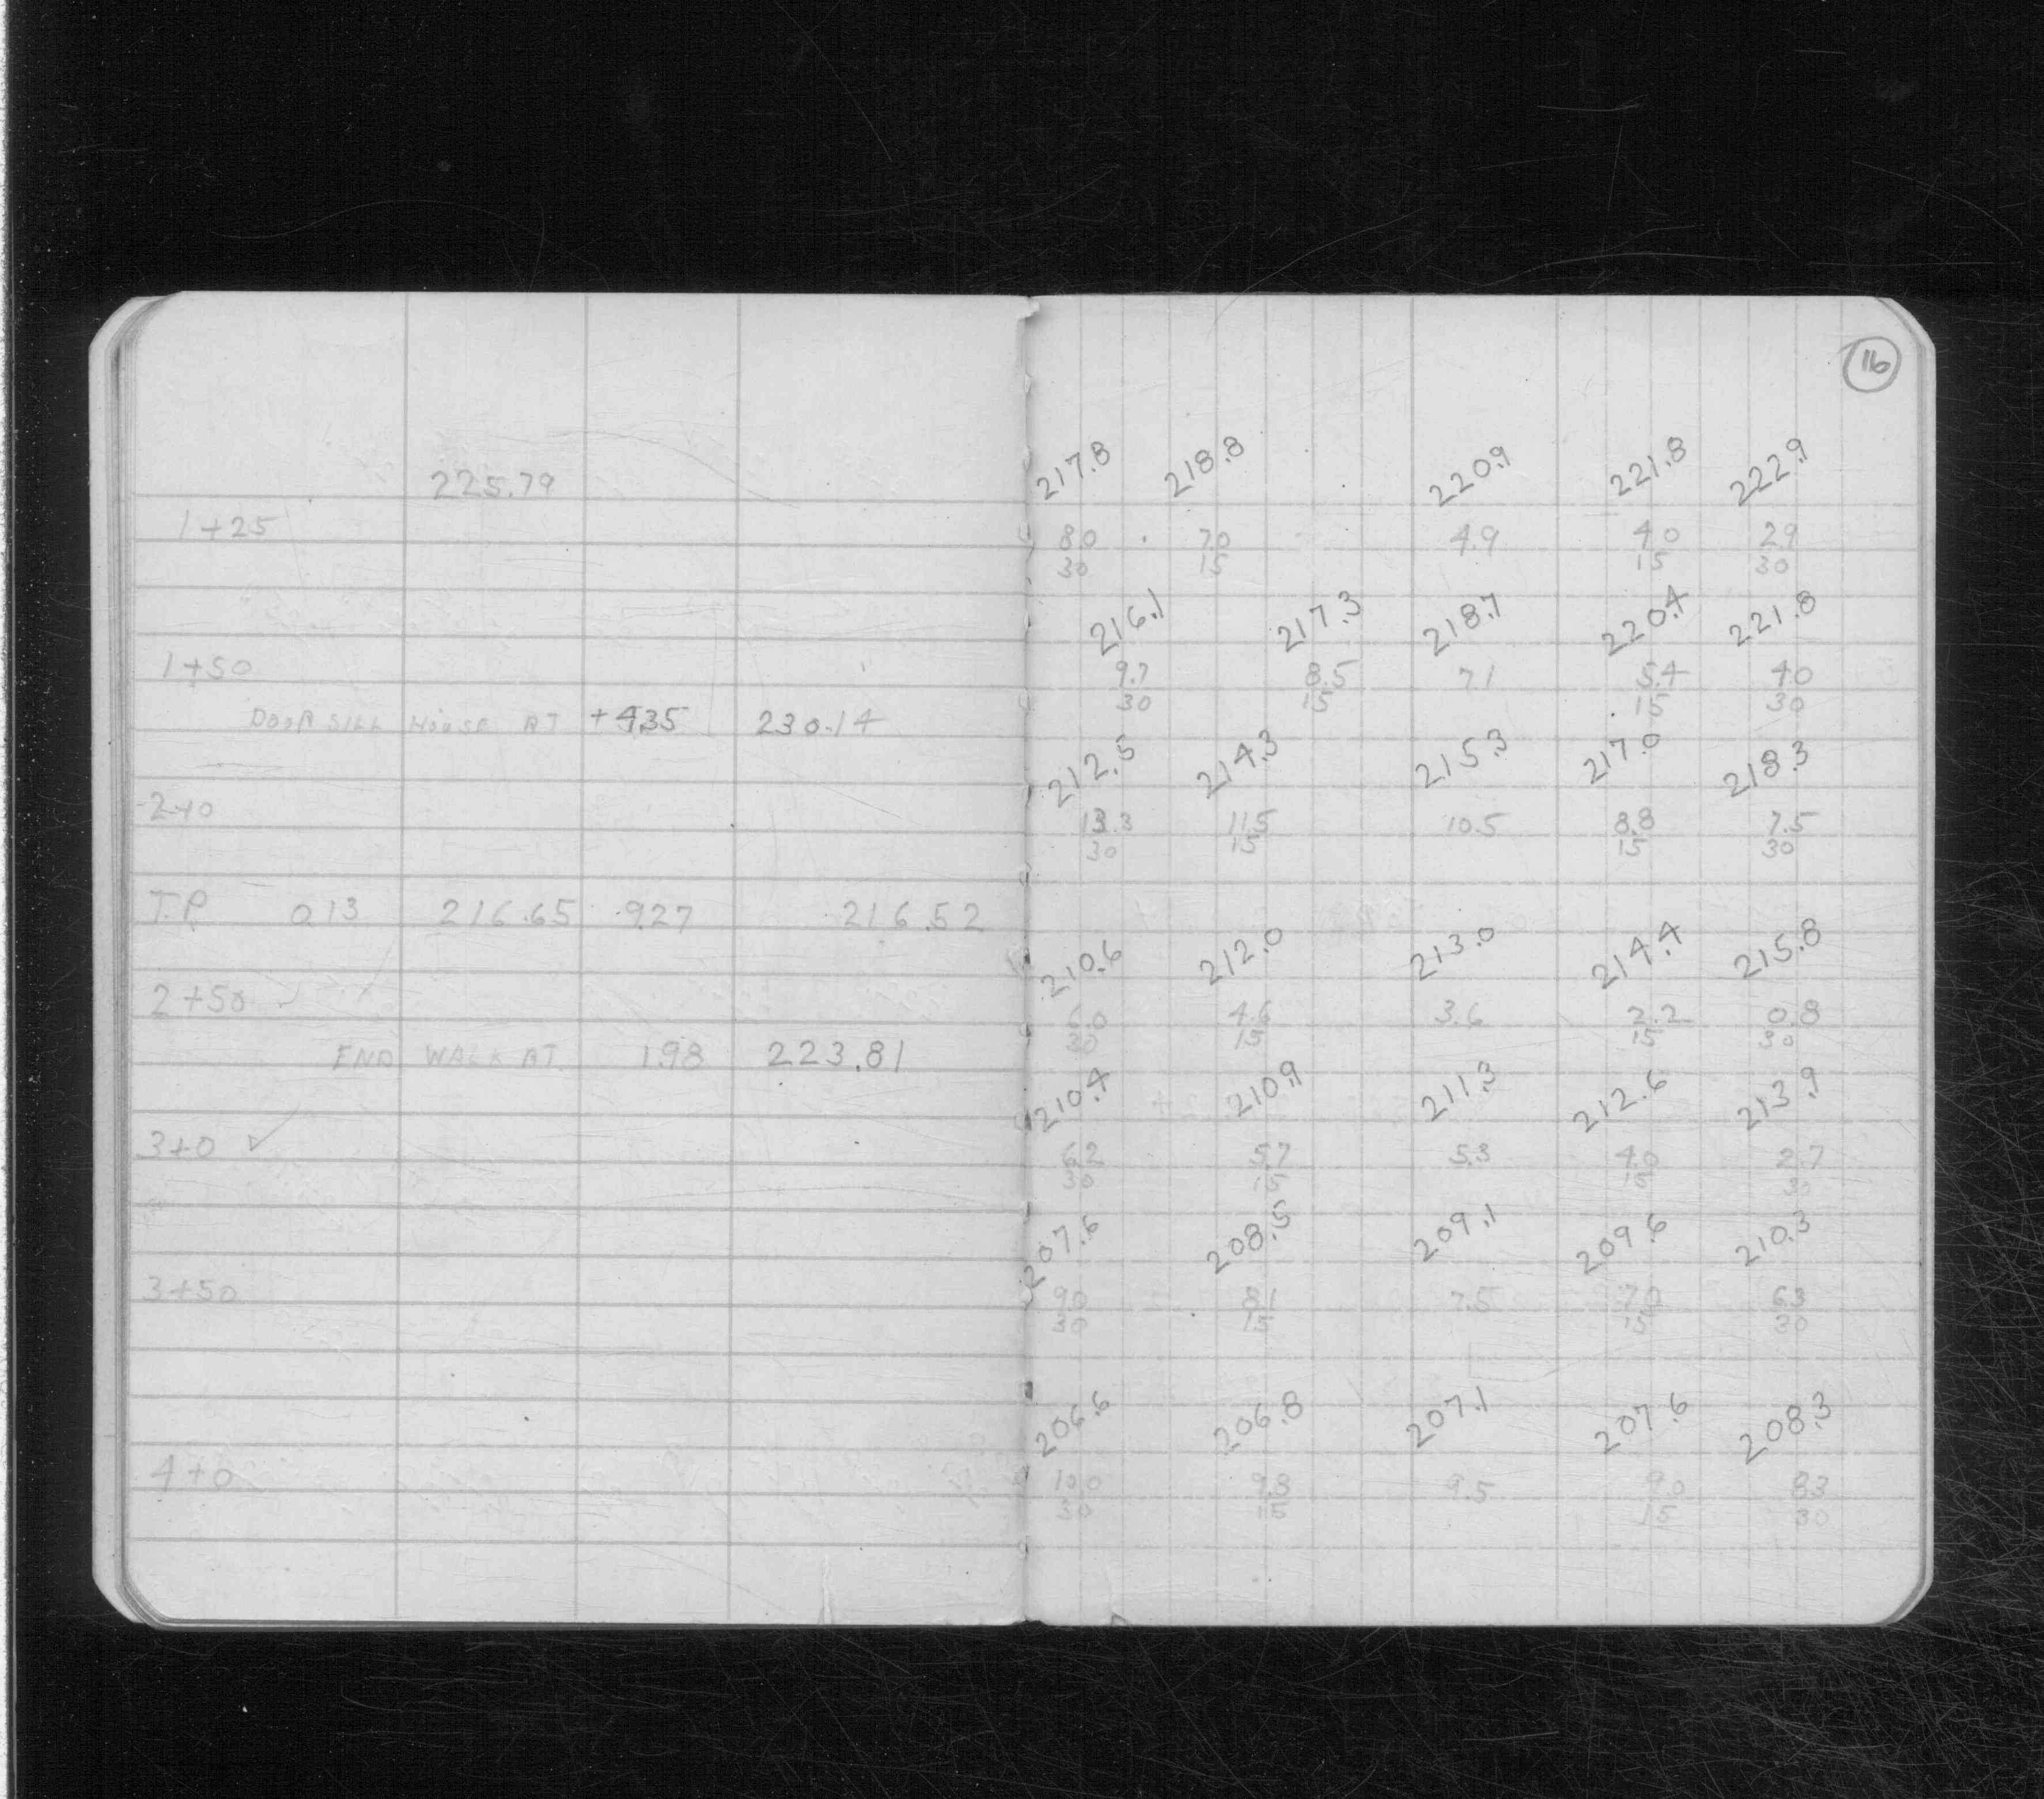 16
225.79
217.8 218.8 220.9 221.8 222.9
1+25
8.0 7.0 4.9 4.0 2.9
30 15 15 30
216.1 217.3 218.7 220.4 221.8
1+50
9.7 8.5 7.1 5.4 4.0
30 15 15 30
DOOR SILL HOUSE AT +435 230.14
212.5 214.3 215.3 217.0 218.3
2+0
13.3 11.5 10.5 8.8 7.5
30 15 15 30
T.P. 013 216.65 927 216.52
210.6 212.0 213.0 214.4 215.8
2+50
6.0 4.6 3.6 2.2 0.8
30 15 15 30
END WALK AT 1.98 223.81
210.4 210.9 211.3 212.6 213.9
3+0 ✓
6.2 5.7 5.3 4.0 2.7
30 15 15 30
207.6 208.5 209.1 209.6 210.3
3+50
9.0 8.1 7.5 7.0 6.3
30 15 15 30
206.6 206.8 207.1 207.6 208.3
4+0
10.0 9.8 9.5 9.0 8.3
30 15 15 30